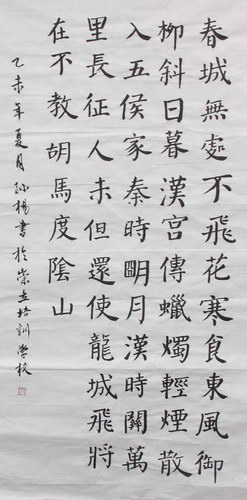 春城無處不飛花寒食東風御
柳斜日暮漢宮傳蠟燭輕煙散
入五侯家秦時明月漢時關萬
里長征人未但還使龍城飛將
在不教胡馬度陰山
乙未年夏月孫楊書於崇培訓學校